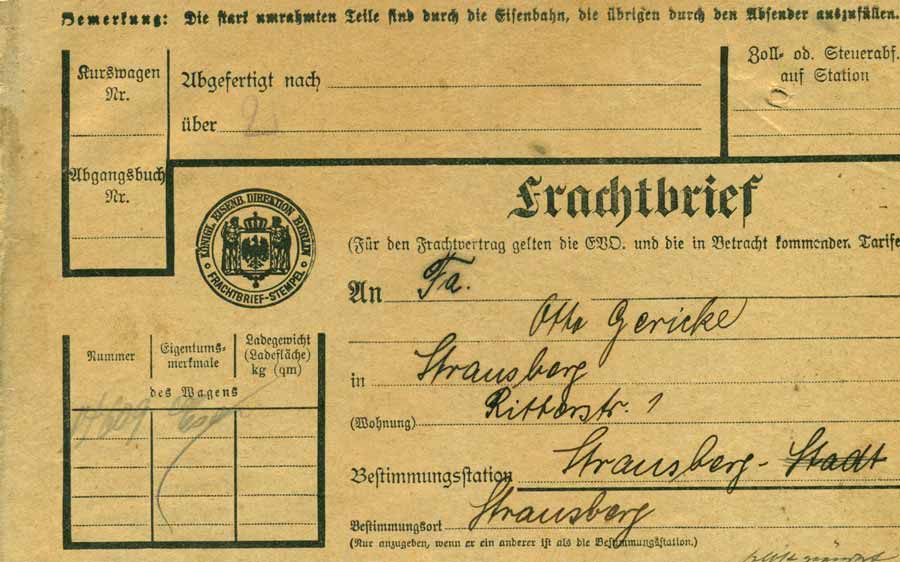 Bemerkung: Die stark umrahmten Teile sind durch die Eisenbahn, die übrigen durch den Absender auszufüllen.
Kurswagen
Nr.
Abgefertigt nach
über 2
Zoll- od. Steuerabf.
auf Station
Abgangsbuch
Nr.
KÖNIGL. EISENB. DIREKTION BERLIN
FRACHTBRIEF-STEMPEL
Frachtbrief
(Für den Frachtvertrag gelten die EVO. und die in Betracht kommenden Tarife
An Fa.
Otto Gericke
in Strausberg
(Wohnung) Ritterstr. 1
Bestimmungsstation Strausberg-Stadt
Bestimmungsort Strausberg
(Nur anzugeben, wenn er ein anderer ist als die Bestimmungsstation.)
Nummer
Eigentums-
merkmale
Ladegewicht
(Ladefläche)
kg (qm)
des Wagens